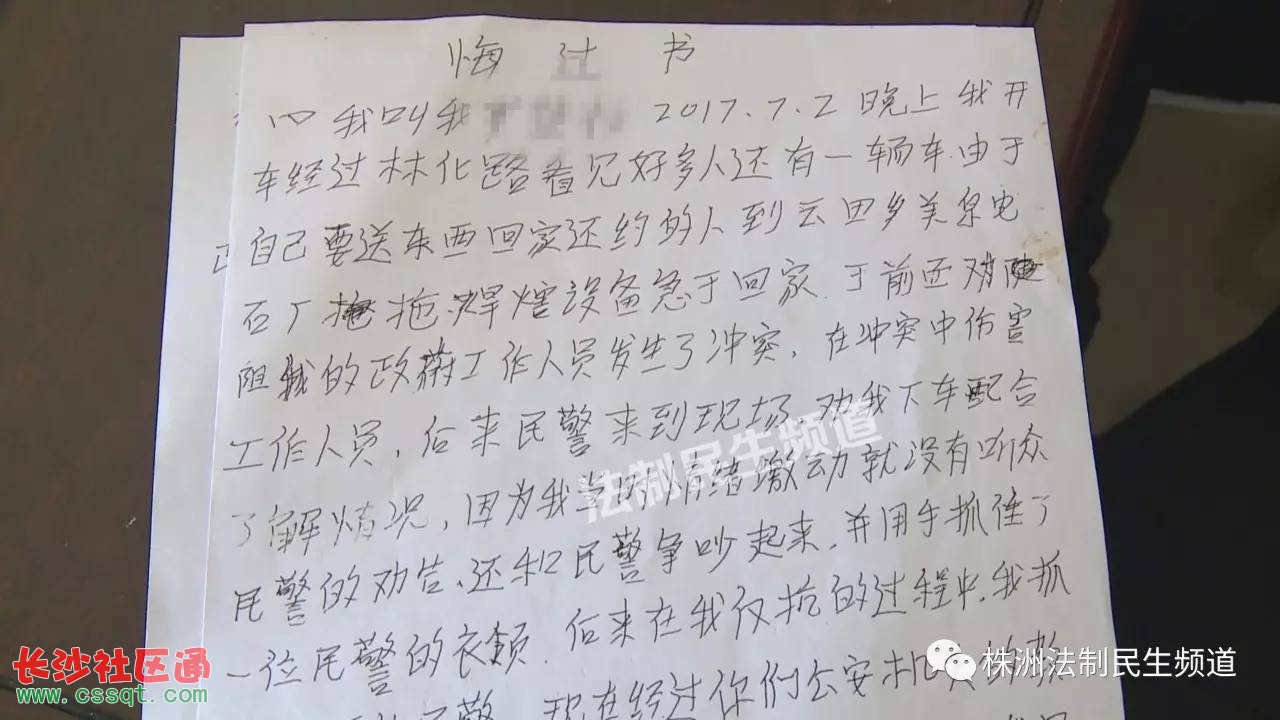 悔过书
我叫我 2017.7.2晚上我开
车经过林化路看见好多人还有一辆车.由于
自己要送东西回家还约的人到云田乡美泉电
石厂拖焊熔设备急于回家.于前还对
阻我的政府工作人员发生了冲突.在冲突中伤害
工作人员,后来民警来到现场.劝我下车配合
了解情况,因为我当时情绪激动就没有听众
民警的劝告.还和民警争吵起来.并用手抓住了
一位民警的衣领.后来在我反抗的过程中.我抓
了警.现在经过你们公安机关的教
法制民生频道
株洲法制民生频道
长沙社区通
www.cssqt.com